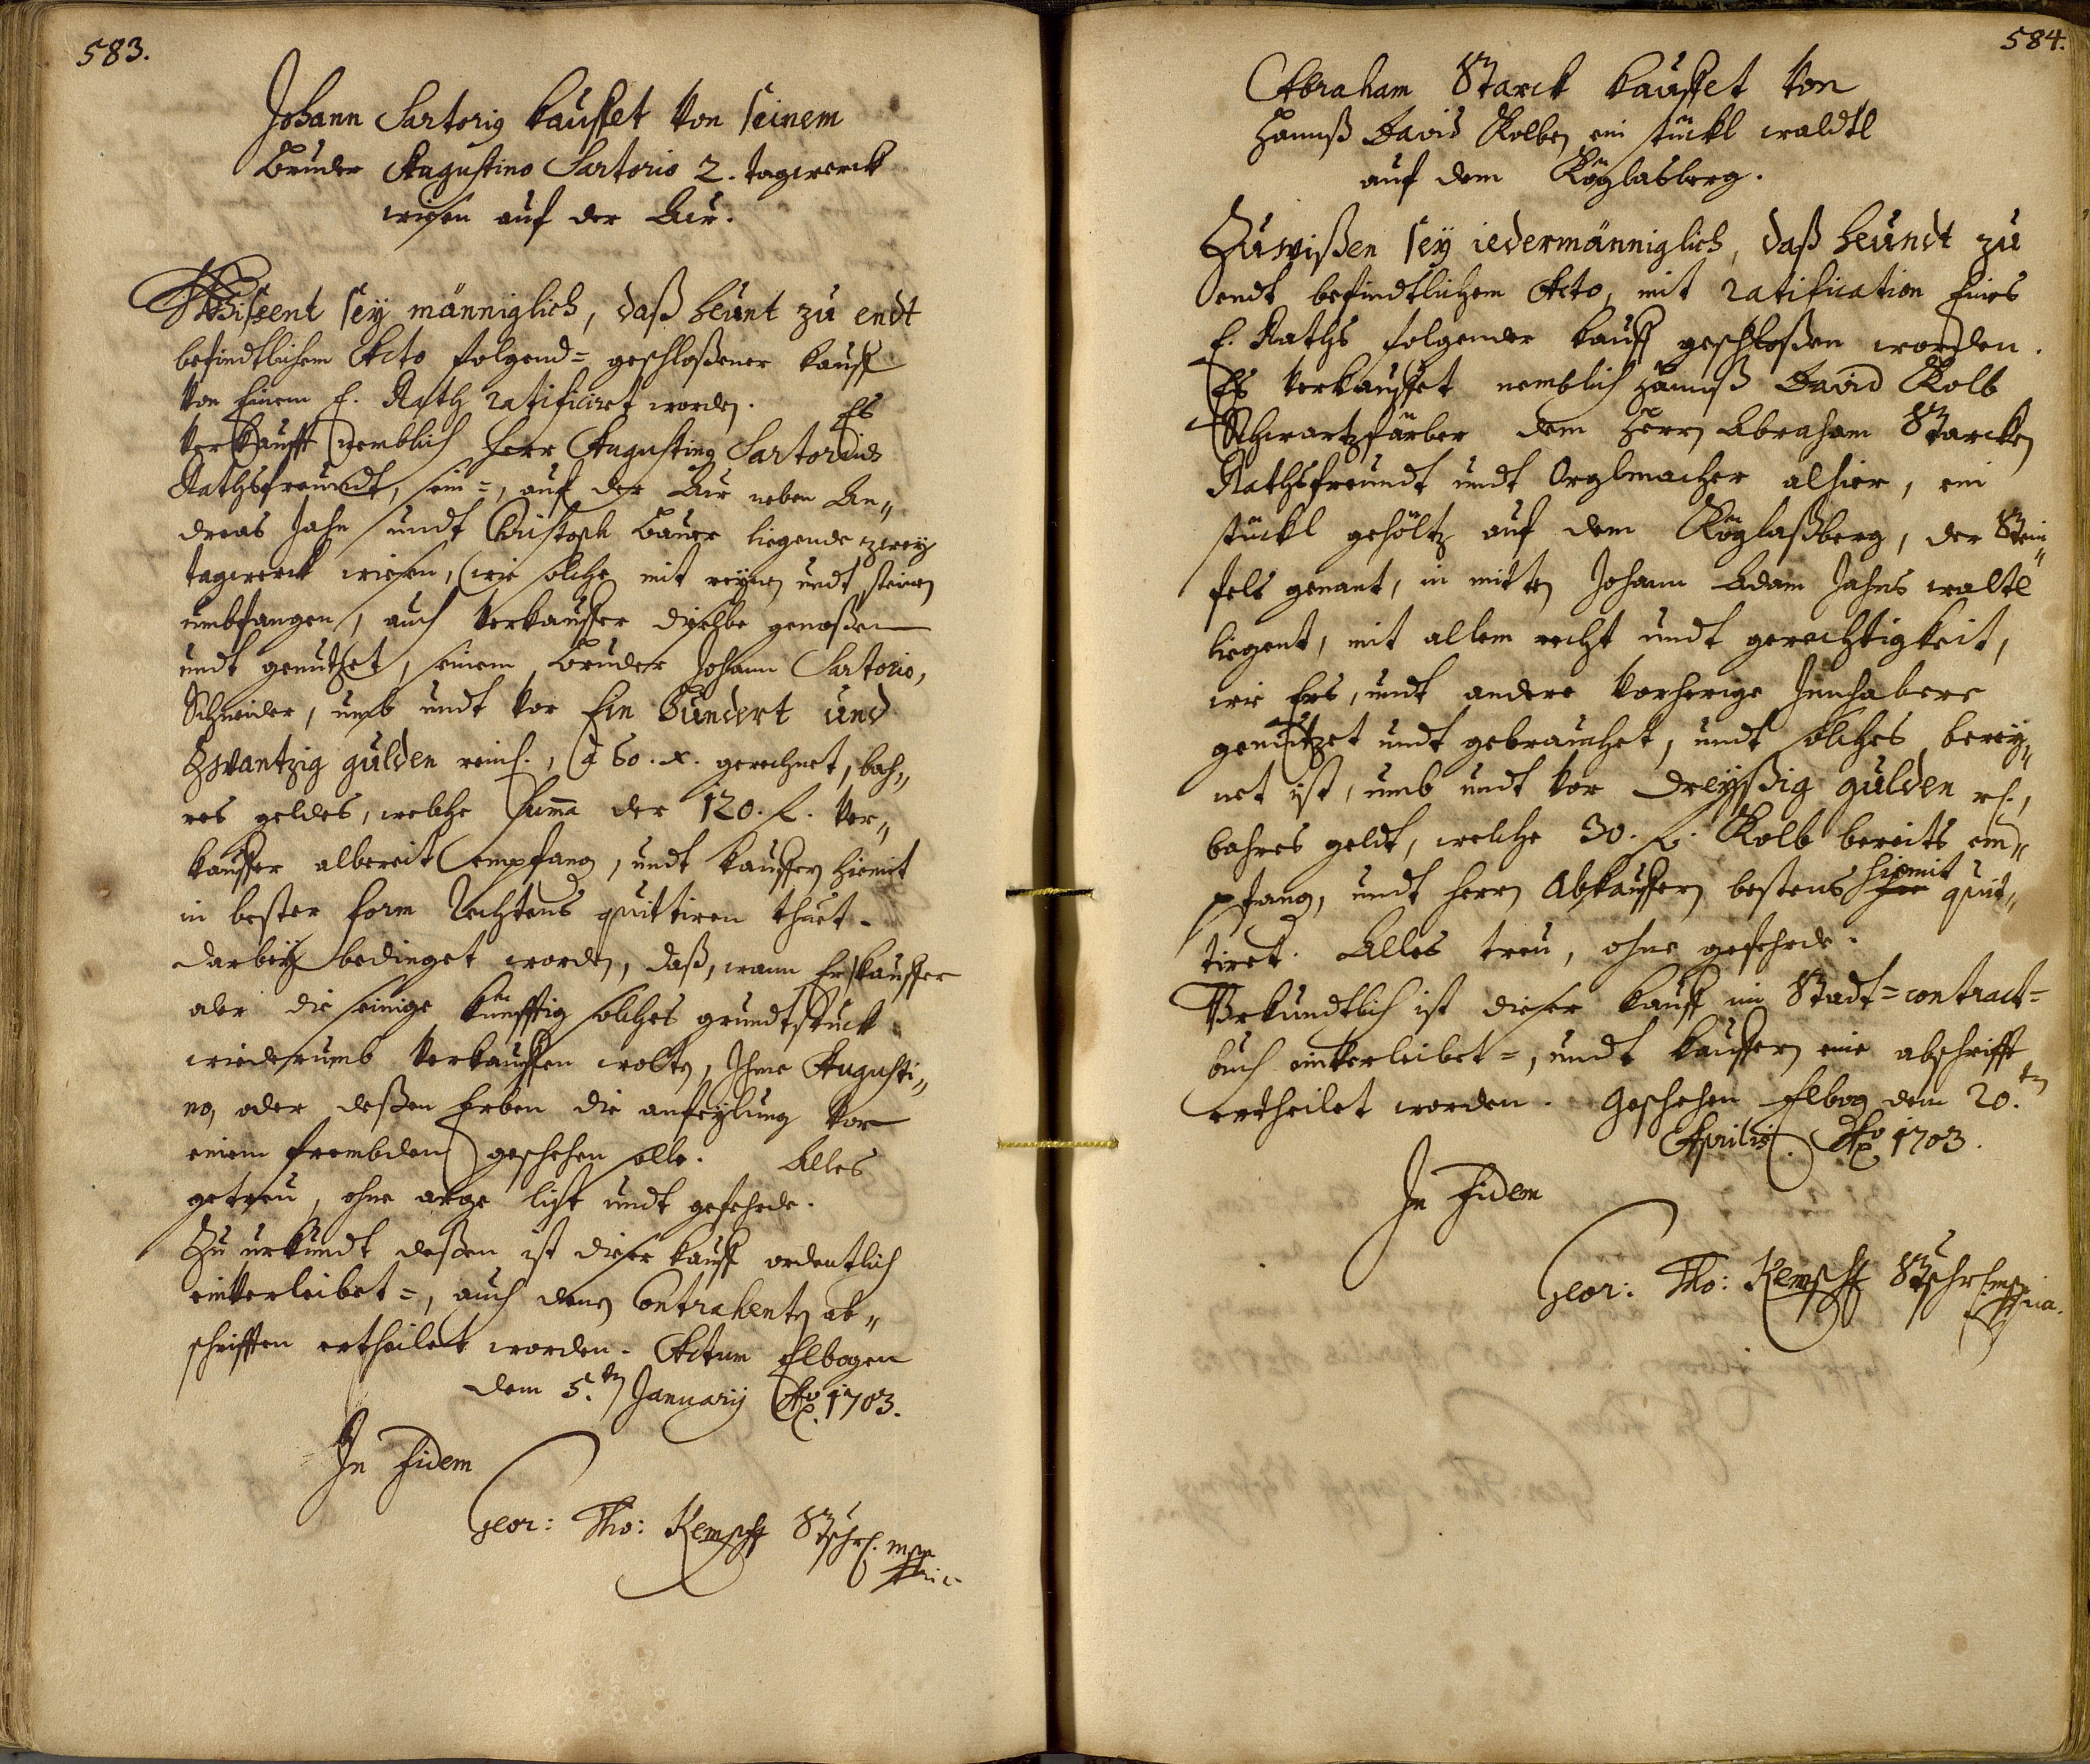 583.
Johann Sartorig kauffet von seinem
Bruder Augustino Sartorio 2. tagwerck
wiesen auf der Aur.
Wissent sey männiglich, daß heunt zu endt
befindtlichem Acto folgend= geschloßener kauff
von Einem E. Rath ratificiret worden. Es
verkaufft nemblich Herr Augustinq Sartorius
Rathsfreundt, sein=, auf der Aur neben An„
dreas Jahn undt Christoph Bauer liegende zwey
tagwerck wiesen, wie solche mit reynen undt steinen
umbfangen, auch verkauffer dieselbe genoßen
undt genutzet, seinem Bruder Johann Sartorio,
Schneider, umb undt vor Ein Hundert und
Zwantzig gulden reinl., a 60. x. gerechnet, bah„
res geldes, welche Summa der 120. f. ver„
kauffer albereit empfang, undt kauffern hiemit
in bester form Rechtens quittiren thuet.
darbey bedinget worden, daß, wann Erkauffer
oder die seinige künfftig solches grundtstuck
wiederumb verkauffen wolte, Ihme Augusti„
no, oder deßen Erben die anfeylung vor
einem frembden geschehen solle. Alles
getreu, ohne arge list undt gefehrde.
Zu urkundt deßen ist dieser kauff ordentlich
einverleibet=, auch denen Contrahenten ab„
schrifften ertheilet worden. Actum Elbogen
dem 5.ten January Ao. 1703.
In Fidem
Geor: Tho: Kempff Stschr. mpria
584.
Abraham Starck kauffet von
Hannß David Kolben ein stückl waldtl
auf dem Köglasberg.
Zuwißen sey iedermänniglich, daß heundt zu
endt befindtlichem Acto, mit ratification Eines
E. Raths folgender kauff geschloßen worden.
Es verkauffet nemblich Hannß David Kolb
Schwartzfärber dem Herrn Abraham Starcken
Rathsfreundt undt Orglmacher alhier, ein
stückl gehöltz auf dem Köglaßberg, der Stein„
fels genant, in mitten Johann Adam Jahns waltl
liegent, mit allem recht undt gerechtigkeit,
wie Ers, undt andere vorherige Innhabere
genutzet undt gebrauchet, undt solches berey„
net ist, umb undt vor dreyßig gulden rh.,
bahres geldt, welche 30. f. Kolb bereits em„
pfang, undt Herrn Abkauffern bestens hiemit quit„
tiret. Alles treu, ohne gefehrde.
Urkundtlich ist dieser kauff im Stadt=contract=
buch einverleibet=, undt kauffern eine abschrifft
ertheilet worden. Geschehen Elbog dem 20.ten
Aprilis. Ao 1703.
In Fidem
Geor: Tho: Kempff Stschr. mpria.